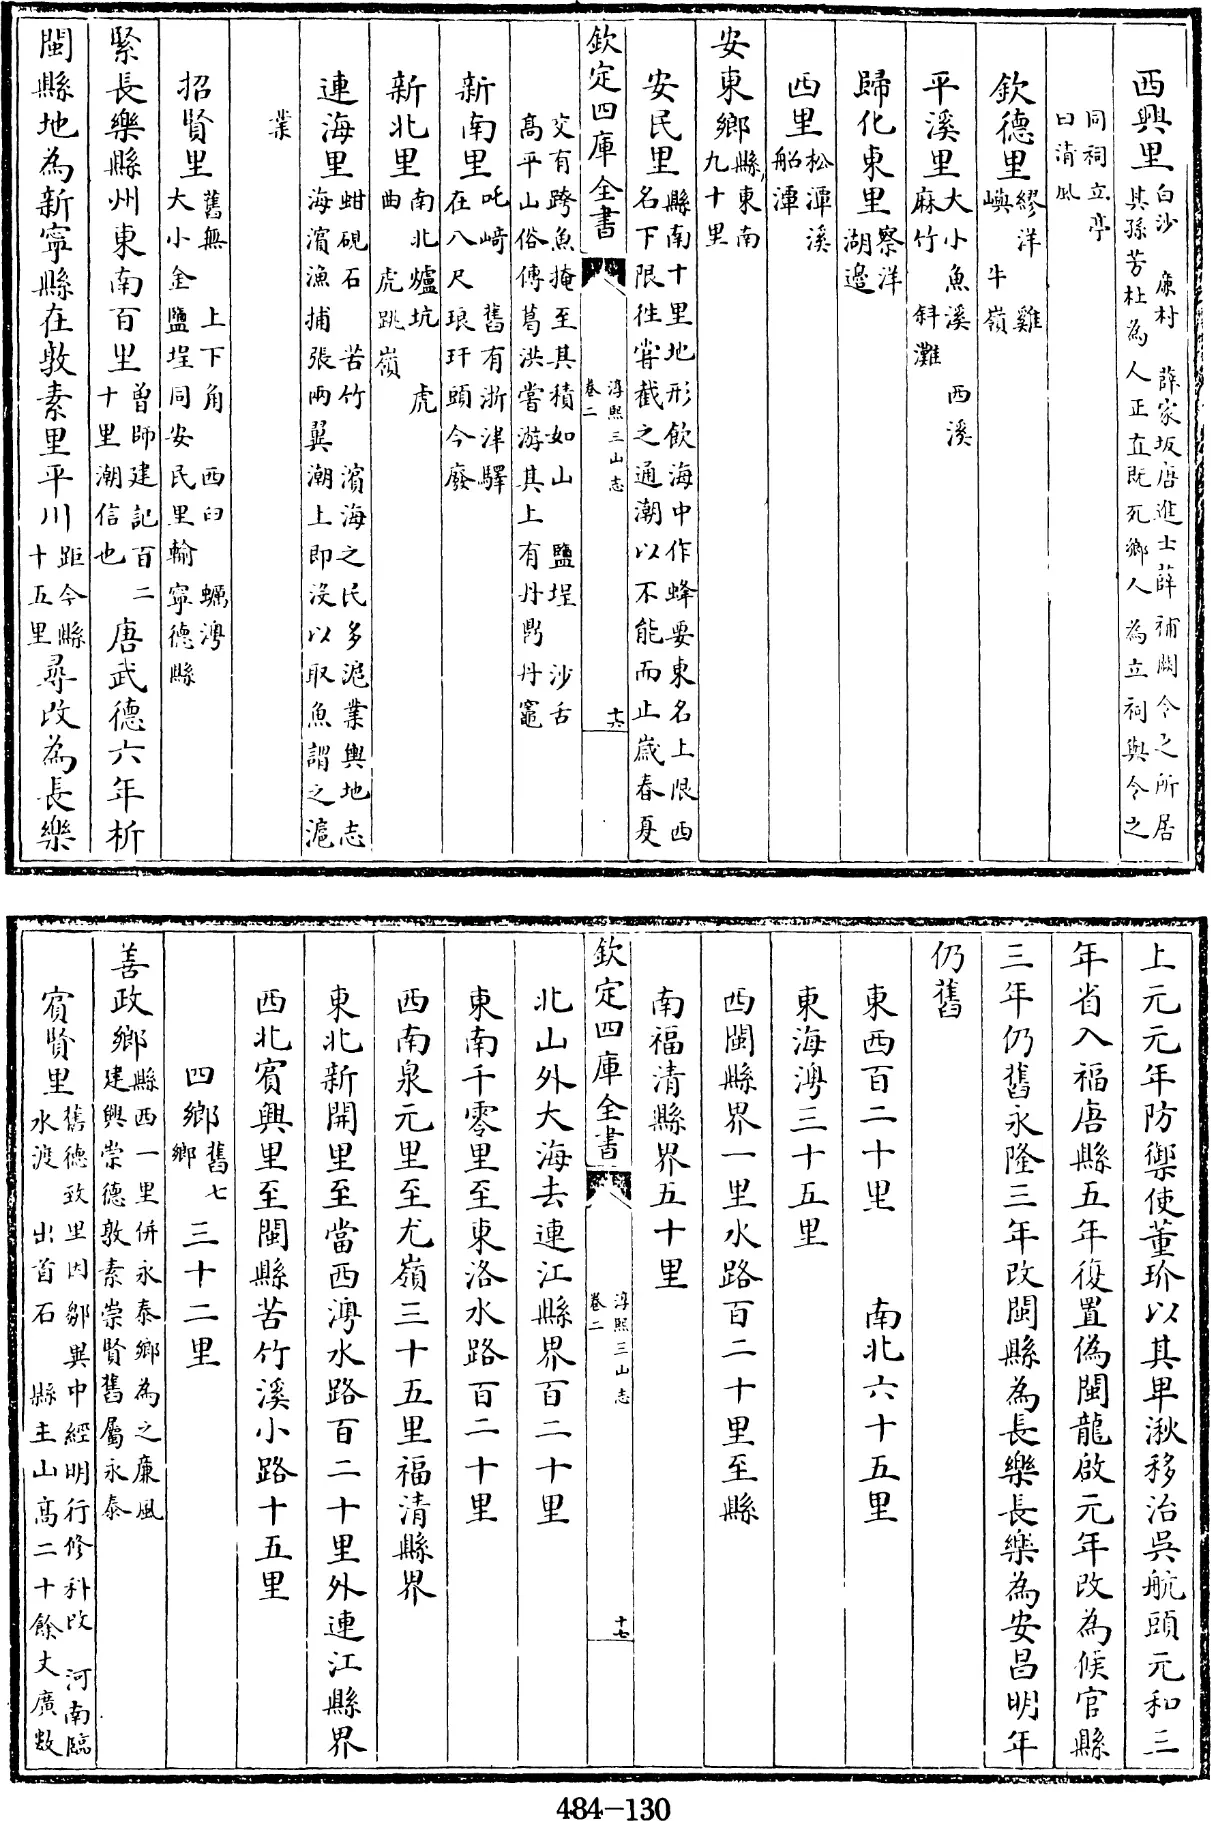 西興里白沙　廉村　薛家坂唐進士薛補闕令之所居
其孫芳杜為人正直既死鄉人為立祠與令之
同祠立亭
曰清風
欽德里繆洋　雞
嶼　牛嶺
平溪里大小魚溪　西溪
麻竹　斜灘
歸化東里察洋
湖邊
西里松潭溪
船潭
安東鄉縣東南
九十里
安民里縣南十里地形飲海中作蜂要東名上限西
名下限往嘗截之通潮以不能而止歲春夏
欽定四庫全書
淳熙三山志
卷二
十六
交有跨魚掩至其積如山　鹽埕　沙舌
高平山俗傳葛洪嘗游其上有丹鼎丹竈
新南里吒﨑　舊有浙津驛
在八尺琅玕頭今廢
新北里南北爐坑　虎
曲　虎跳嶺
連海里蚶硯石　苦竹　濱海之民多滬業輿地志
海濱漁捕張兩翼潮上即沒以取魚謂之滬
業
招賢里舊無　上下角　西臼　蠣灣
大小金鹽埕同安民里輸寧德縣
緊長樂縣州東南百里曽師建記百二
十里潮信也唐武德六年析
閩縣地為新寧縣在敦素里平川距今縣
十五里尋改為長樂
上元元年防禦使董玠以其卑湫移治吳航頭元和三
年省入福唐縣五年復置偽閩龍啟元年改為候官縣
三年仍舊永隆三年改閩縣為長樂長樂為安昌明年
仍舊
東西百二十里　南北六十五里
東海灣三十五里
西閩縣界一里水路百二十里至縣
南福清縣界五十里
欽定四庫全書
淳熙三山志
卷二
十七
北山外大海去連江縣界百二十里
東南千零里至東洛水路百二十里
西南泉元里至尤嶺三十五里福清縣界
東北新開里至當西灣水路百二十里外連江縣界
西北賓興里至閩縣苦竹溪小路十五里
四鄉舊七
鄉三十二里
善政鄉縣西一里併永泰鄉為之廉風
建興崇德敦素崇賢舊屬永泰
賓賢里舊德致里因鄒異中經明行修科改　河南臨
水渡　出首石　縣主山高二十餘丈廣數
484-130